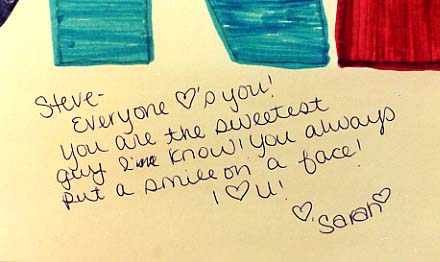 Steve-
Everyone ♡'s you!
you are the sweetest
guy I know! you always
put a smile on a face!
I ♡ U!
♡, Sarah♡